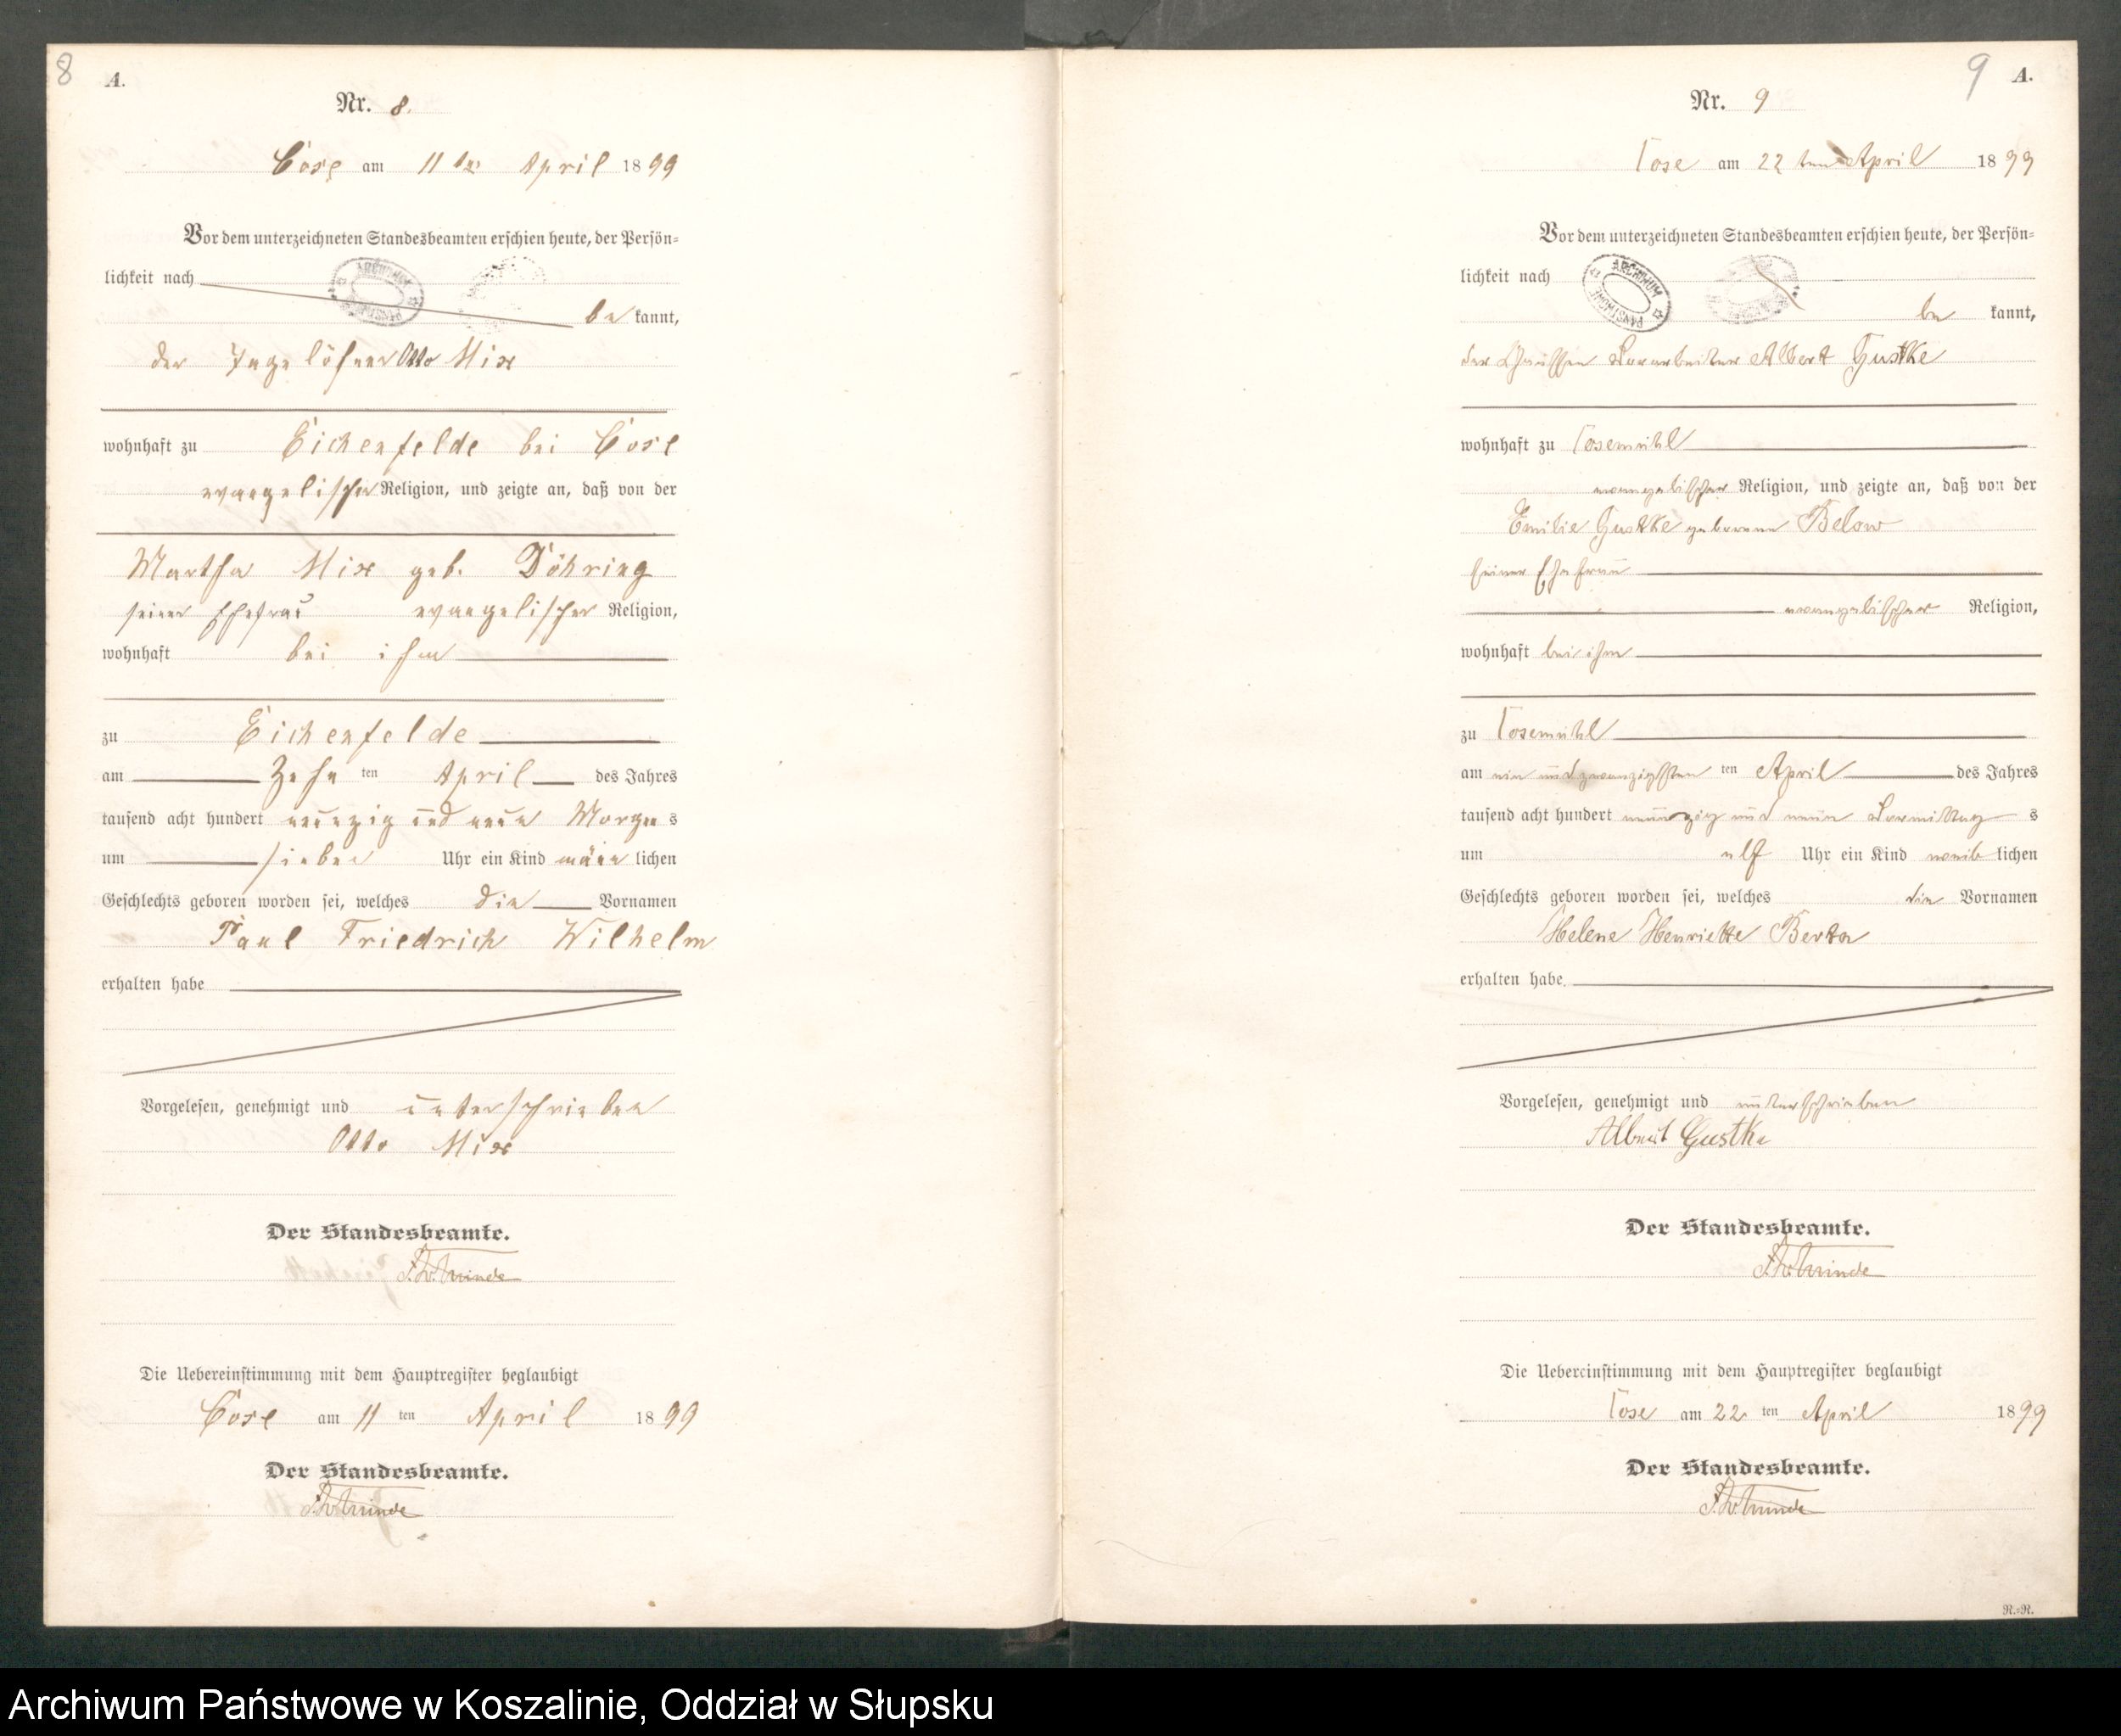 8
A.
Nr. 8.
Cose am 11 ten April 1899
Vor dem unterzeichneten Standesbeamten erschien heute, der Persön-
lichkeit nach
be kannt,
der Tagelöhner Otto Mix
wohnhaft zu Eichenfelde bei Cose
evangelischer Religion, und zeigte an, daß von der
Martha Mix geb. Döhring
seiner Ehefrau evangelischer Religion,
wohnhaft bei ihm
zu Eichenfelde
am Zehn ten April des Jahres
tausend acht hundert neunzig und neun Morgen s
um sieben Uhr ein Kind männ lichen
Geschlechts geboren worden sei, welches die Vornamen
Paul Friedrich Wilhelm
erhalten habe
Vorgelesen, genehmigt und unterschrieben
Otto Mix
Der Standesbeamte.
Die Uebereinstimmung mit dem Hauptregister beglaubigt
Cose am 11 ten April 1899
Der Standesbeamte.
9
A.
Nr. 9
Cose am 22 ten April 1899
Vor dem unterzeichneten Standesbeamten erschien heute, der Persön-
lichkeit nach
ARCHIWUM
be kannt,
der Chaussee Vorarbeiter Albert Gustke
wohnhaft zu Cosemühl
evangelischer Religion, und zeigte an, daß von der
Emilie Gustke geborene Below
seiner Ehefrau
evangelischer Religion,
wohnhaft bei ihm
zu Cosemühl
am ein und zwanzigsten ten April des Jahres
tausend acht hundert neunzig und neun Vormittag s
um elf Uhr ein Kind weib lichen
Geschlechts geboren worden sei, welches die Vornamen
Helene Henriette Berta
erhalten habe.
Vorgelesen, genehmigt und unterschrieben
Albert Gustke
Der Standesbeamte.
Die Uebereinstimmung mit dem Hauptregister beglaubigt
Cose am 22 ten April 1899
Der Standesbeamte.
R.=R.
Archiwum Państwowe w Koszalinie, Oddział w Słupsku